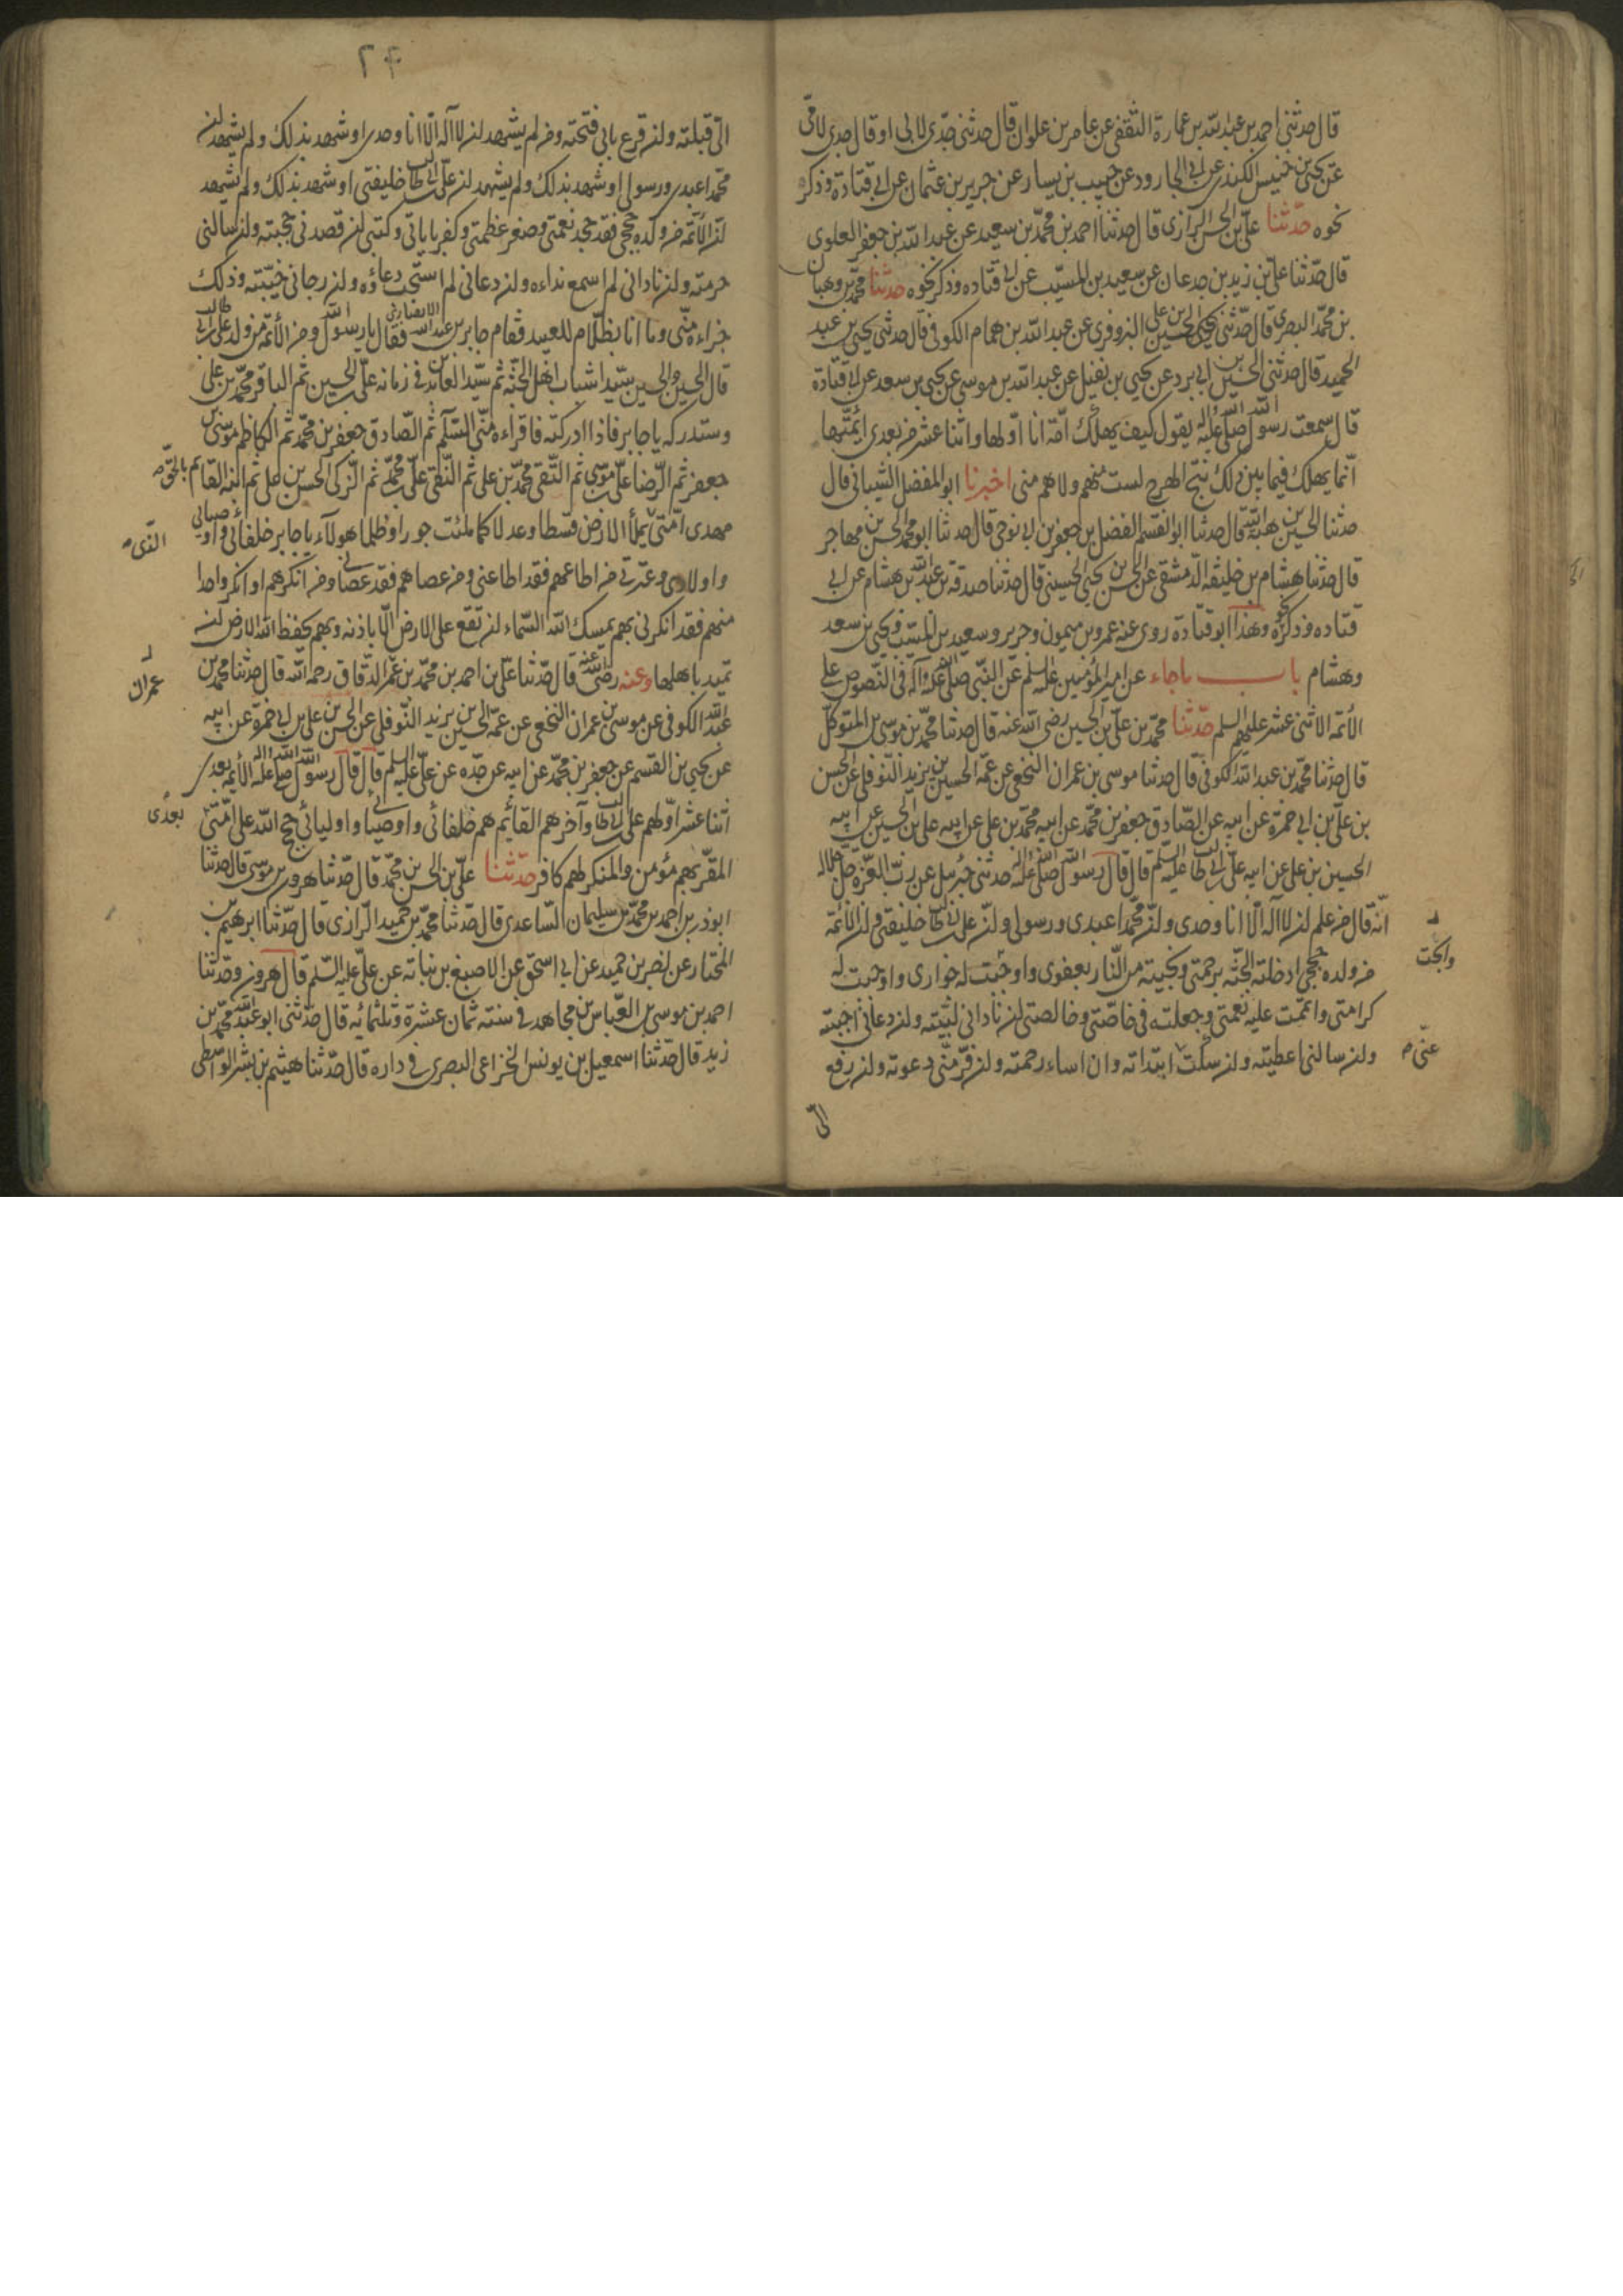 قال حدثنی احمد بن عبدالله بن عمارة الثقفی عن عامر بن علوان قال حدثنی جدّی لابی او قال جدی لامّی
عن یحیی بن خنیس الکندی عن ابی الجارود عن حبیب بن یسار عن جریر بن عثمان عن ابی قتادة وذکر
نحوه حدّثنا علیّ بن الحسن الرازی قال حدثنا احمد بن محمّد بن سعید عن عبدالله بن جعفر العلوی
قال حدّثنا علیّ بن زید بن جدعان عن سعید بن المسیّب عن ابی قتاده وذکر نحوه حدثنا محمّد بن وهبان
بن محمّد البصری قال حدّثنی الحسین بن علی البزوفری عن عبدالله بن همام الکوفی قال حدثنی یحیی بن عبد
الحمید قال حدثنی الحسین بن ابی برد عن یحیی بن یفیل عن عبدالله بن موسی عن یحیی بن سعد عن ابی قتادة
قال سمعت رسول الله صلی الله علیه واله یقول کیف یهلک امّة انا اولها واثنا عشر من بعدی ائمّتها
انّما یهلک فیما بین ذلک نتج الهرج لست منهم ولا هم منی اخبرنا ابو المفضل الشیبانی قال
حدثنا الحسین بن هبة الله قال حدثنا ابو القسم الفضل بن جعفر بن ابی نوحی قال حدثنا ابو محمد الحسن بن مهاجر
قال حدثنا هشام بن خلیفة الدّمشقی عن الحسن بن یحیی الحسینی قال حدثنا صدقة بن عبدالله بن هشام عن ابی
قتاده وذکر نحوه وهذا ابو قتادة روی عنه عمرو بن میمون وجریر وسعید بن المسیّب ویحیی بن سعد
وهشام باب ماجاء عن امیر المؤمنین علیه السلم عن النّبی صلی الله علیه وآله فی النّصوص علی
الأئمّة الاثنی عشر علیهم السلم حدّثنا محمّد بن علیّ بن الحسین رضی الله عنه قال حدثنا محمّد بن موسی بن المتوکّل
قال حدثنا محمّد بن عبدالله الکوفی قال حدثنا موسی بن عمران النخعی عن عمّه الحسین بن یزید النّوفلی عن الحسن
بن علیّ بن ابی حمزة عن ابیه عن الصّادق جعفر بن محمّد عن ابیه محمّد بن علی عن ابیه علی بن الحسین عن ابیه
الحسین بن علی عن ابیه علیّ بن ابی طالب علیه السّلم قال قال رسول الله صلی الله علیه واله حدثنی جبرئیل عن ربّ العزّة جلّ جلاله
انّه قال من علم ان لا آله الّا انا وحدی وانّ محمّدا عبدی ورسولی وانّ علیّ بن ابی طالب خلیفتی وان الائمّة
من ولده حججی ادخلته الجنّة برحمتی ونجیته من النّار بعفوی واوجبت له جواری واوجبت له
وابحت
کرامتی واتممت علیه نعمتی وجعلته فی خاصّتی وخالصتی ان نادانی لبّیته وان دعانی اجبته
وان سالنی اعطیته وان سکت ابتداته وان اساء رحمته وان فرّ منّی دعوته وان رجع
عنّی
الیّ
۲۴
الیّ قبلته وان قرع بابی فتحته ومن لم یشهد ان لا آله الّا انا وحدی او شهد بذلک ولم یشهد ان
محمّدا عبدی ورسولی او شهد بذلک ولم یشهد ان علیّ بن ابی طالب خلیفتی او شهد بذلک ولم یشهد
انّ الأئمّة من ولده حججی فقد جحد نعمتی وصغّر عظمتی وکفر بایاتی وکتبی ان قصدنی حجبته وان سالنی
حرمته وان نادانی لم اسمع نداءه وان دعانی لم استجب دعاؤه وان رجانی خیّبته وذلک
جزاءه منّی وما انا بظلّام للعبید فقام جابر بن عبدالله الانصاری فقال یا رسول الله ومن الأئمّة من ولد علیّ بن ابی طالب
قال الحسن والحسین سیّدا شباب اهل الجنّة ثم سیّد العابدین فی زمانه علیّ بن الحسین ثم الباقر محمّد بن علی
وستدرکه یا جابر فاذا ادرکته فاقراءه منّی السّلم ثم الصّادق جعفر بن محمّد ثم الکاظم موسی بن
جعفر ثم الرّضا علیّ بن موسی ثم التّقی محمّد بن علی ثم النّقی علیّ بن محمّد ثم الزّکی الحسن بن علی ثم ابنه القائم بالحقّ
مهدی امّتی یملأ الارض قسطا وعدلا کما ملئت جورا وظلما هولآء یا جابر خلفائی واوصیائی
الّذی
واولادی وعترتی من اطاعهم فقد اطاعنی ومن عصاهم فقد عصانی ومن انکرهم او انکر واحدا
منهم فقد انکرنی بهم یمسک الله السّماء ان تقع علی الارض الّا باذنه وبهم یحفظ الله الارض ان
تمید باهلها وعنه رضی الله عنه قال حدّثنا علیّ بن احمد بن محمّد بن عمر الدّقاق رحمه الله قال حدثنا محمد بن
عمران
عبدالله الکوفی عن موسی بن عمران النخعی عن عمّه الحسین بن یزید النّوفلی عن الحسن بن علی بن ابی حمزة عن ابیه
عن یحیی بن القسم عن جعفر بن محمّد عن ابیه عن جدّه عن علیّ علیه السلم قال قال رسول الله صلی الله علیه واله الأئمة بعدی
بعدی
اثنا عشر اوّلهم علیّ بن ابی طالب وآخرهم القائم هم خلفائی واوصیائی واولیائی وحجج الله علی امّتی
المقرّ بهم مؤمن والمنکر لهم کافر حدّثنا علیّ بن الحسن بن محمّد قال حدّثنا هرون بن موسی قال حدثنا
ابوذر بن احمد بن محمّد بن سلیمان السّاعدی قال حدثنا محمّد بن حمید الرّازی قال حدّثنا ابرهیم بن
المختار عن نصر بن حمید عن ابی اسحق عن الاصبغ بن نباته عن علیّ علیه السّلم قال هرون وحدّثنا
احمد بن موسی بن العبّاس بن مجاهد فی سنته ثمان عشرة وثلثمائه قال حدّثنی ابو عبدالله محمّد بن
زید قال حدّثنا اسمعیل بن یونس الخزاعی البصری فی داره قال حدّثنا هیثم بن بشر الواسطی